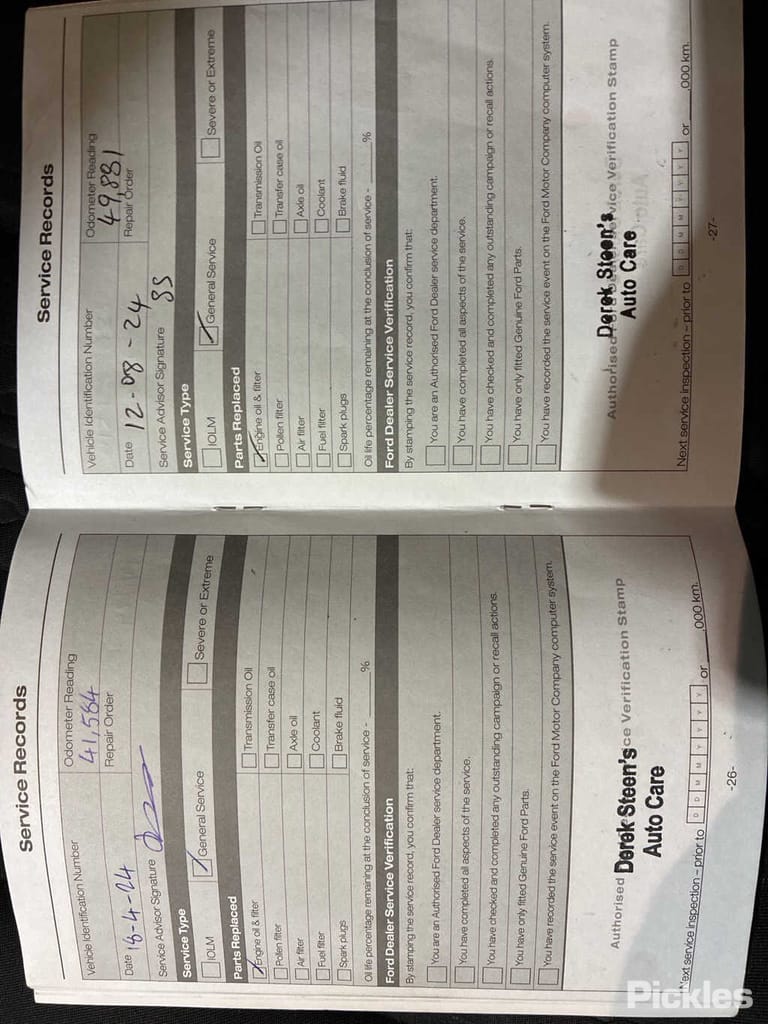 Service Records
Vehicle Identification Number
Odometer Reading
41,584
Date 18-4-24
Repair Order
Service Advisor Signature
Service Type
IOLM
General Service
Severe or Extreme
Parts Replaced
Engine oil & filter
Transmission Oil
Pollen filter
Transfer case oil
Air filter
Axle oil
Fuel filter
Coolant
Spark plugs
Brake fluid
Oil life percentage remaining at the conclusion of service - %
Ford Dealer Service Verification
By stamping the service record, you confirm that:
You are an Authorised Ford Dealer service department.
You have completed all aspects of the service.
You have checked and completed any outstanding campaign or recall actions.
You have only fitted Genuine Ford Parts.
You have recorded the service event on the Ford Motor Company computer system.
Authorised Derek Steen's ce Verification Stamp
Auto Care
Next service inspection – prior to D D M M Y Y Y Y or ,000 km.
-26-
Service Records
Vehicle Identification Number
Odometer Reading
49,881
Date 12-08-24
Repair Order
Service Advisor Signature SS
Service Type
IOLM
General Service
Severe or Extreme
Parts Replaced
Engine oil & filter
Transmission Oil
Pollen filter
Transfer case oil
Air filter
Axle oil
Fuel filter
Coolant
Spark plugs
Brake fluid
Oil life percentage remaining at the conclusion of service - %
Ford Dealer Service Verification
By stamping the service record, you confirm that:
You are an Authorised Ford Dealer service department.
You have completed all aspects of the service.
You have checked and completed any outstanding campaign or recall actions.
You have only fitted Genuine Ford Parts.
You have recorded the service event on the Ford Motor Company computer system.
Derek Steen's
Authorised Service Verification Stamp
Auto Care
Next service inspection – prior to D D M M Y Y Y Y or ,000 km.
-27-
Pickles